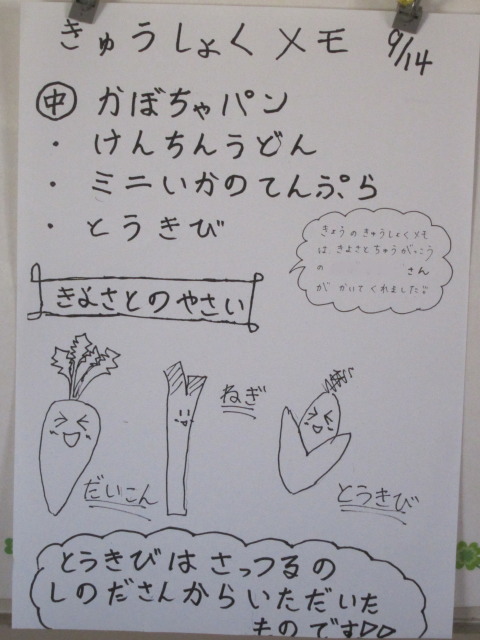 きゅうしょくメモ 9/14
中 かぼちゃパン
・ けんちんうどん
・ ミニいかのてんぷら
・ とうきび
きょうのきゅうしょくメモ
は、きよさとちゅうがっこう
の さん
が かいてくれました
きよさとのやさい
ねぎ
だいこん
とうきび
とうきびは さっつるの
しのださんからいただいた
ものです